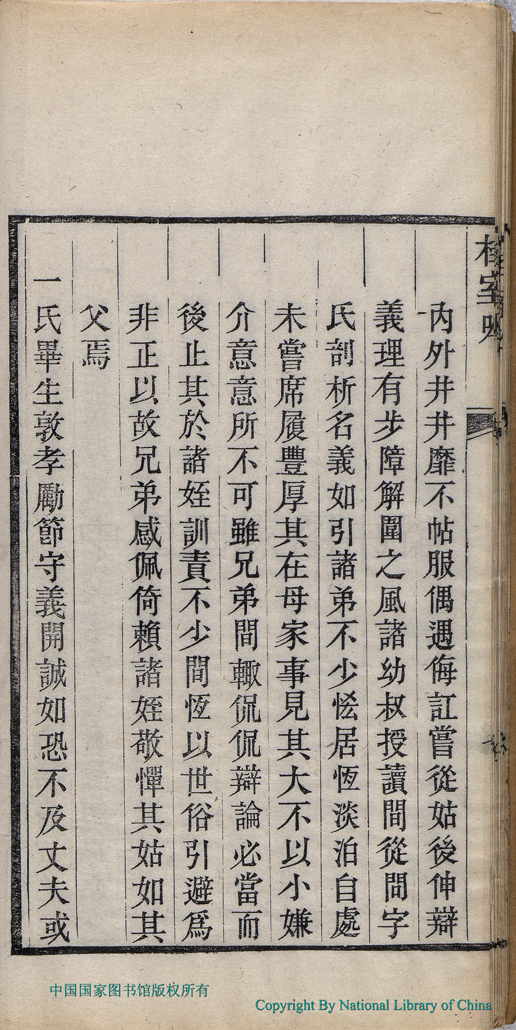 內外井井靡不帖服偶遇侮訌嘗從姑後伸辯
義理有步障解圍之風諸幼叔授讀間從問字
氏剖析名義如引諸弟不少恡居恆淡泊自處
未嘗席履豐厚其在母家事見其大不以小嫌
介意意所不可雖兄弟間輙侃侃辯論必當而
後止其於諸姪訓責不少間恆以世俗引避爲
非正以故兄弟感佩倚賴諸姪敬憚其姑如其
父焉
一氏畢生敦孝勵節守義開誠如恐不及丈夫或
中国国家图书馆版权所有
Copyright By National Library of China